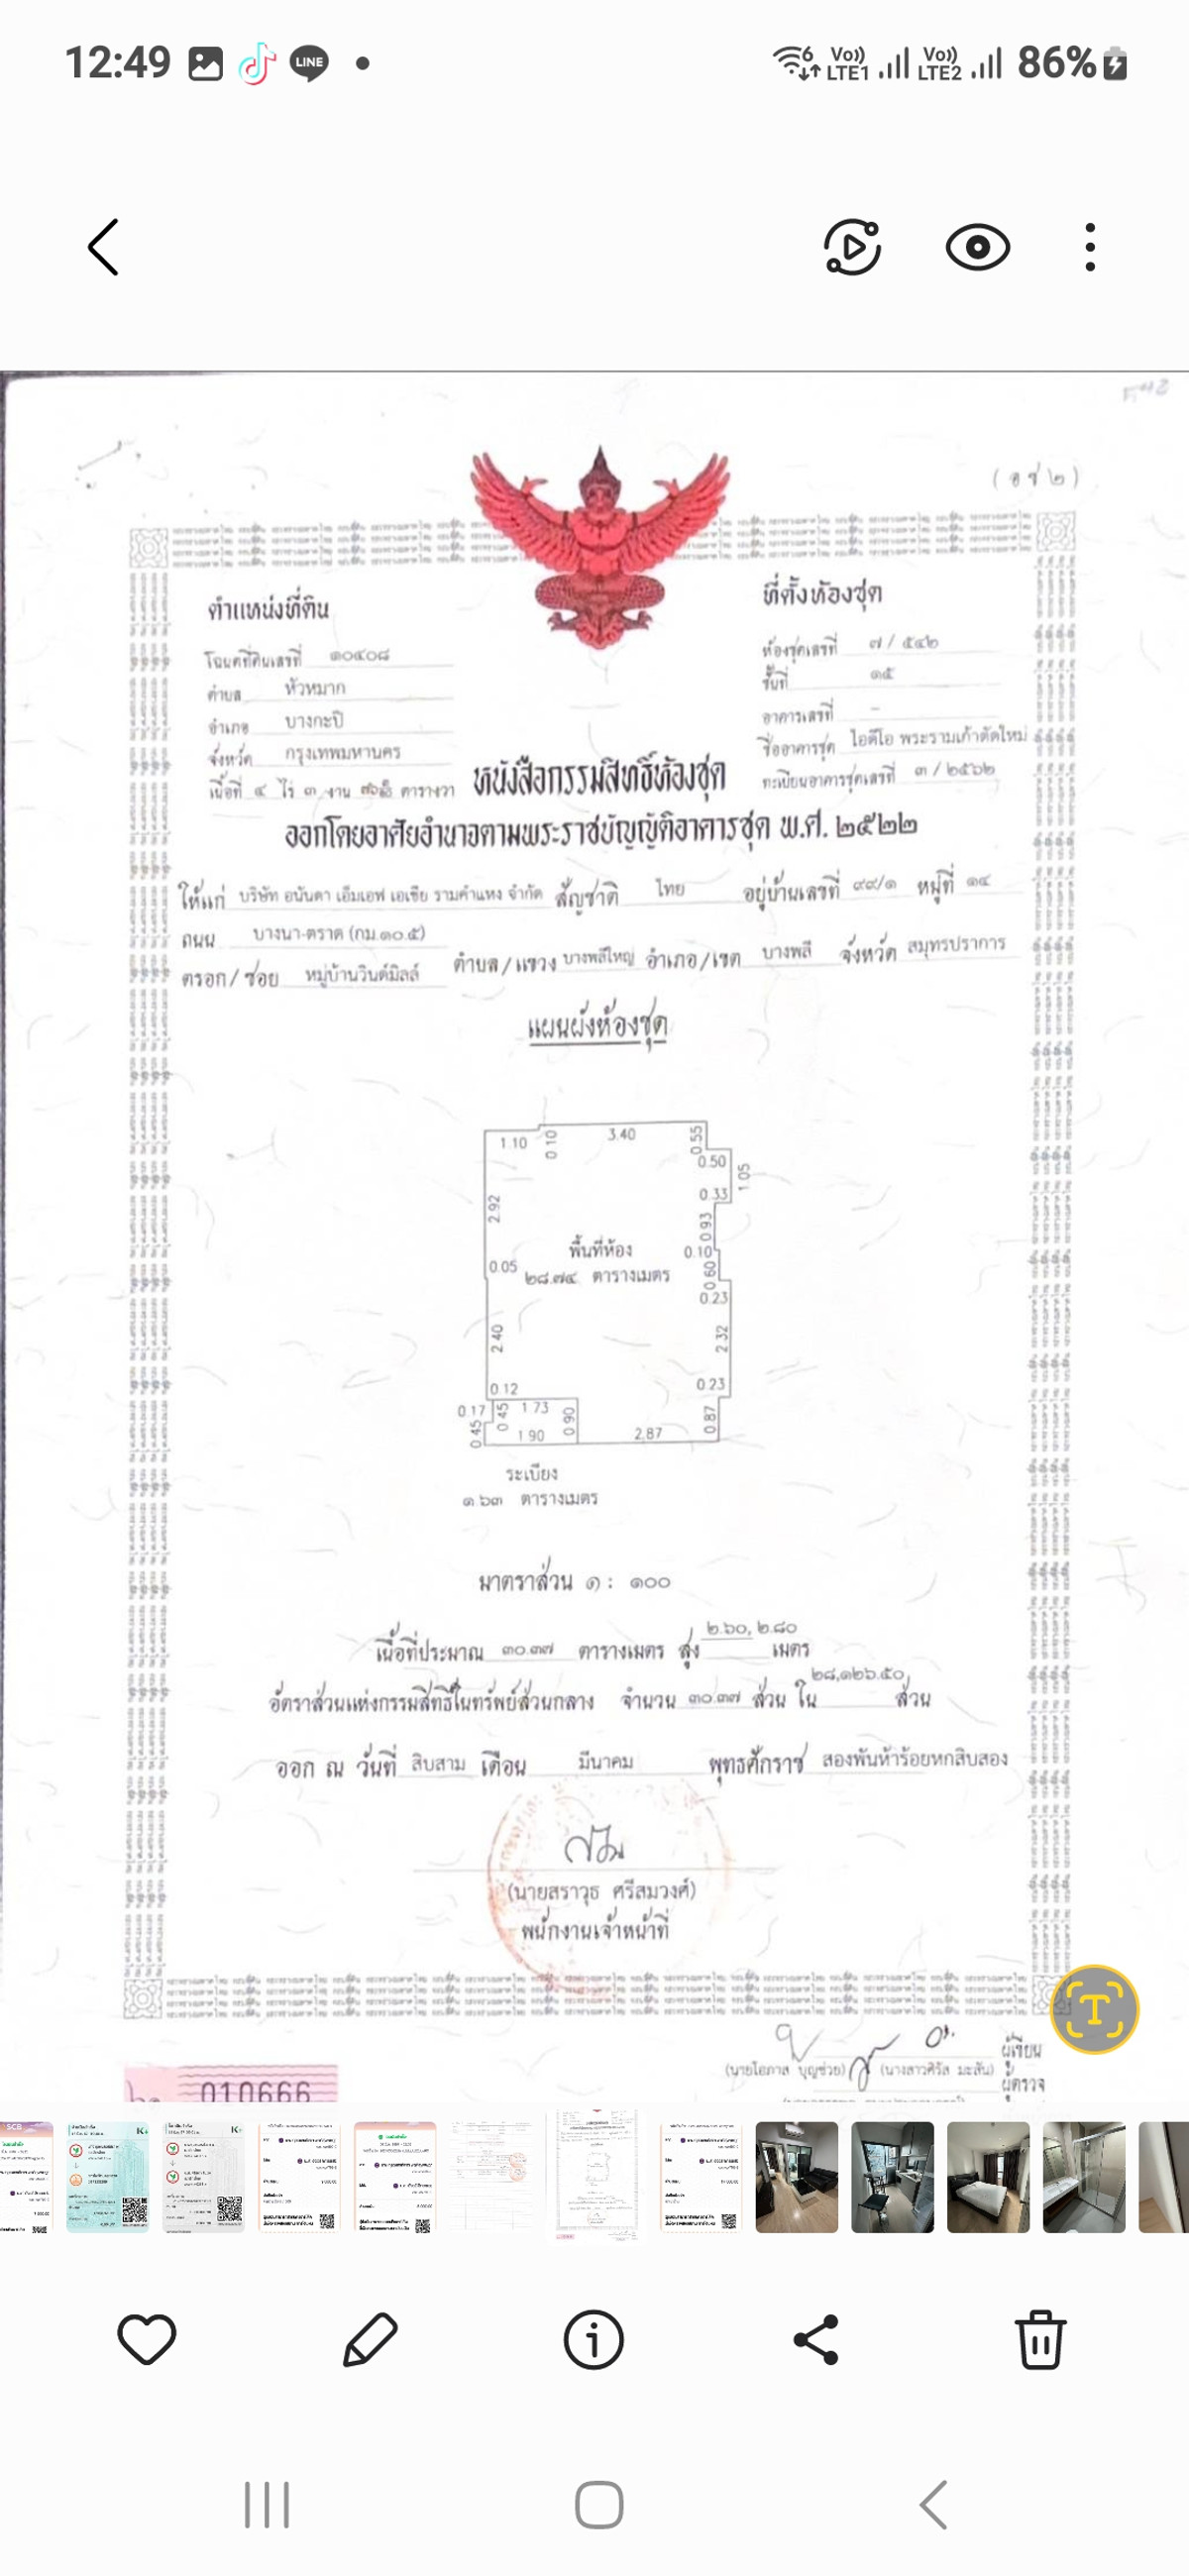 12:49
LINE
Vo)) LTE1 Vo)) LTE2 86%
(อช ๒)
ตำแหน่งที่ดิน
โฉนดที่ดินเลขที่ ๑๐๔๐๘
ตำบล หัวหมาก
อำเภอ บางกะปิ
จังหวัด กรุงเทพมหานคร
เนื้อที่ ๔ ไร่ ๓ งาน ตารางวา
ที่ตั้งห้องชุด
ห้องชุดเลขที่ ๗ / ๕๔๒
ชั้นที่ ๑๕
อาคารเลขที่ -
ชื่ออาคารชุด ไอดีโอ พระรามเก้าตัดใหม่
ทะเบียนอาคารชุดเลขที่ ๓ / ๒๕๖๒
หนังสือกรรมสิทธิ์ห้องชุด
ออกโดยอาศัยอำนาจตามพระราชบัญญัติอาคารชุด พ.ศ. ๒๕๒๒
ให้แก่ บริษัท อนันดา เอ็มเอฟ เอเชีย รามคำแหง จำกัด สัญชาติ ไทย อยู่บ้านเลขที่ ๙๙/๑ หมู่ที่ ๑๔
ถนน บางนา-ตราด (กม.๑๐.๕)
ตรอก/ซอย หมู่บ้านวินด์มิลล์ ตำบล/แขวง บางพลีใหญ่ อำเภอ/เขต บางพลี จังหวัด สมุทรปราการ
แผนผังห้องชุด
1.10 0.10 3.40 0.55
0.50 1.05
0.33
2.92 0.93
พื้นที่ห้อง 0.10
0.05 ๒๘.๗๔ ตารางเมตร 0.60
0.23
2.40 2.32
0.12 0.23
0.17 0.45 1.73 0.90 0.87
0.45 1.90 2.87
ระเบียง
๑.๖๓ ตารางเมตร
มาตราส่วน ๑ : ๑๐๐
เนื้อที่ประมาณ ๓๐.๓๗ ตารางเมตร สูง ๒.๖๐, ๒.๘๐ เมตร
อัตราส่วนแห่งกรรมสิทธิ์ในทรัพย์ส่วนกลาง จำนวน ๓๐.๓๗ ส่วน ใน ๒๘,๑๒๖.๕๐ ส่วน
ออก ณ วันที่ สิบสาม เดือน มีนาคม พุทธศักราช สองพันห้าร้อยหกสิบสอง
(นายสราวุธ ศรีสมวงศ์)
พนักงานเจ้าหน้าที่
(นายโอภาส บุญช่วย) (นางสาวศิวัล มะสัน) ผู้เขียน
ผู้ตรวจ
010666
SCB
K+
K+